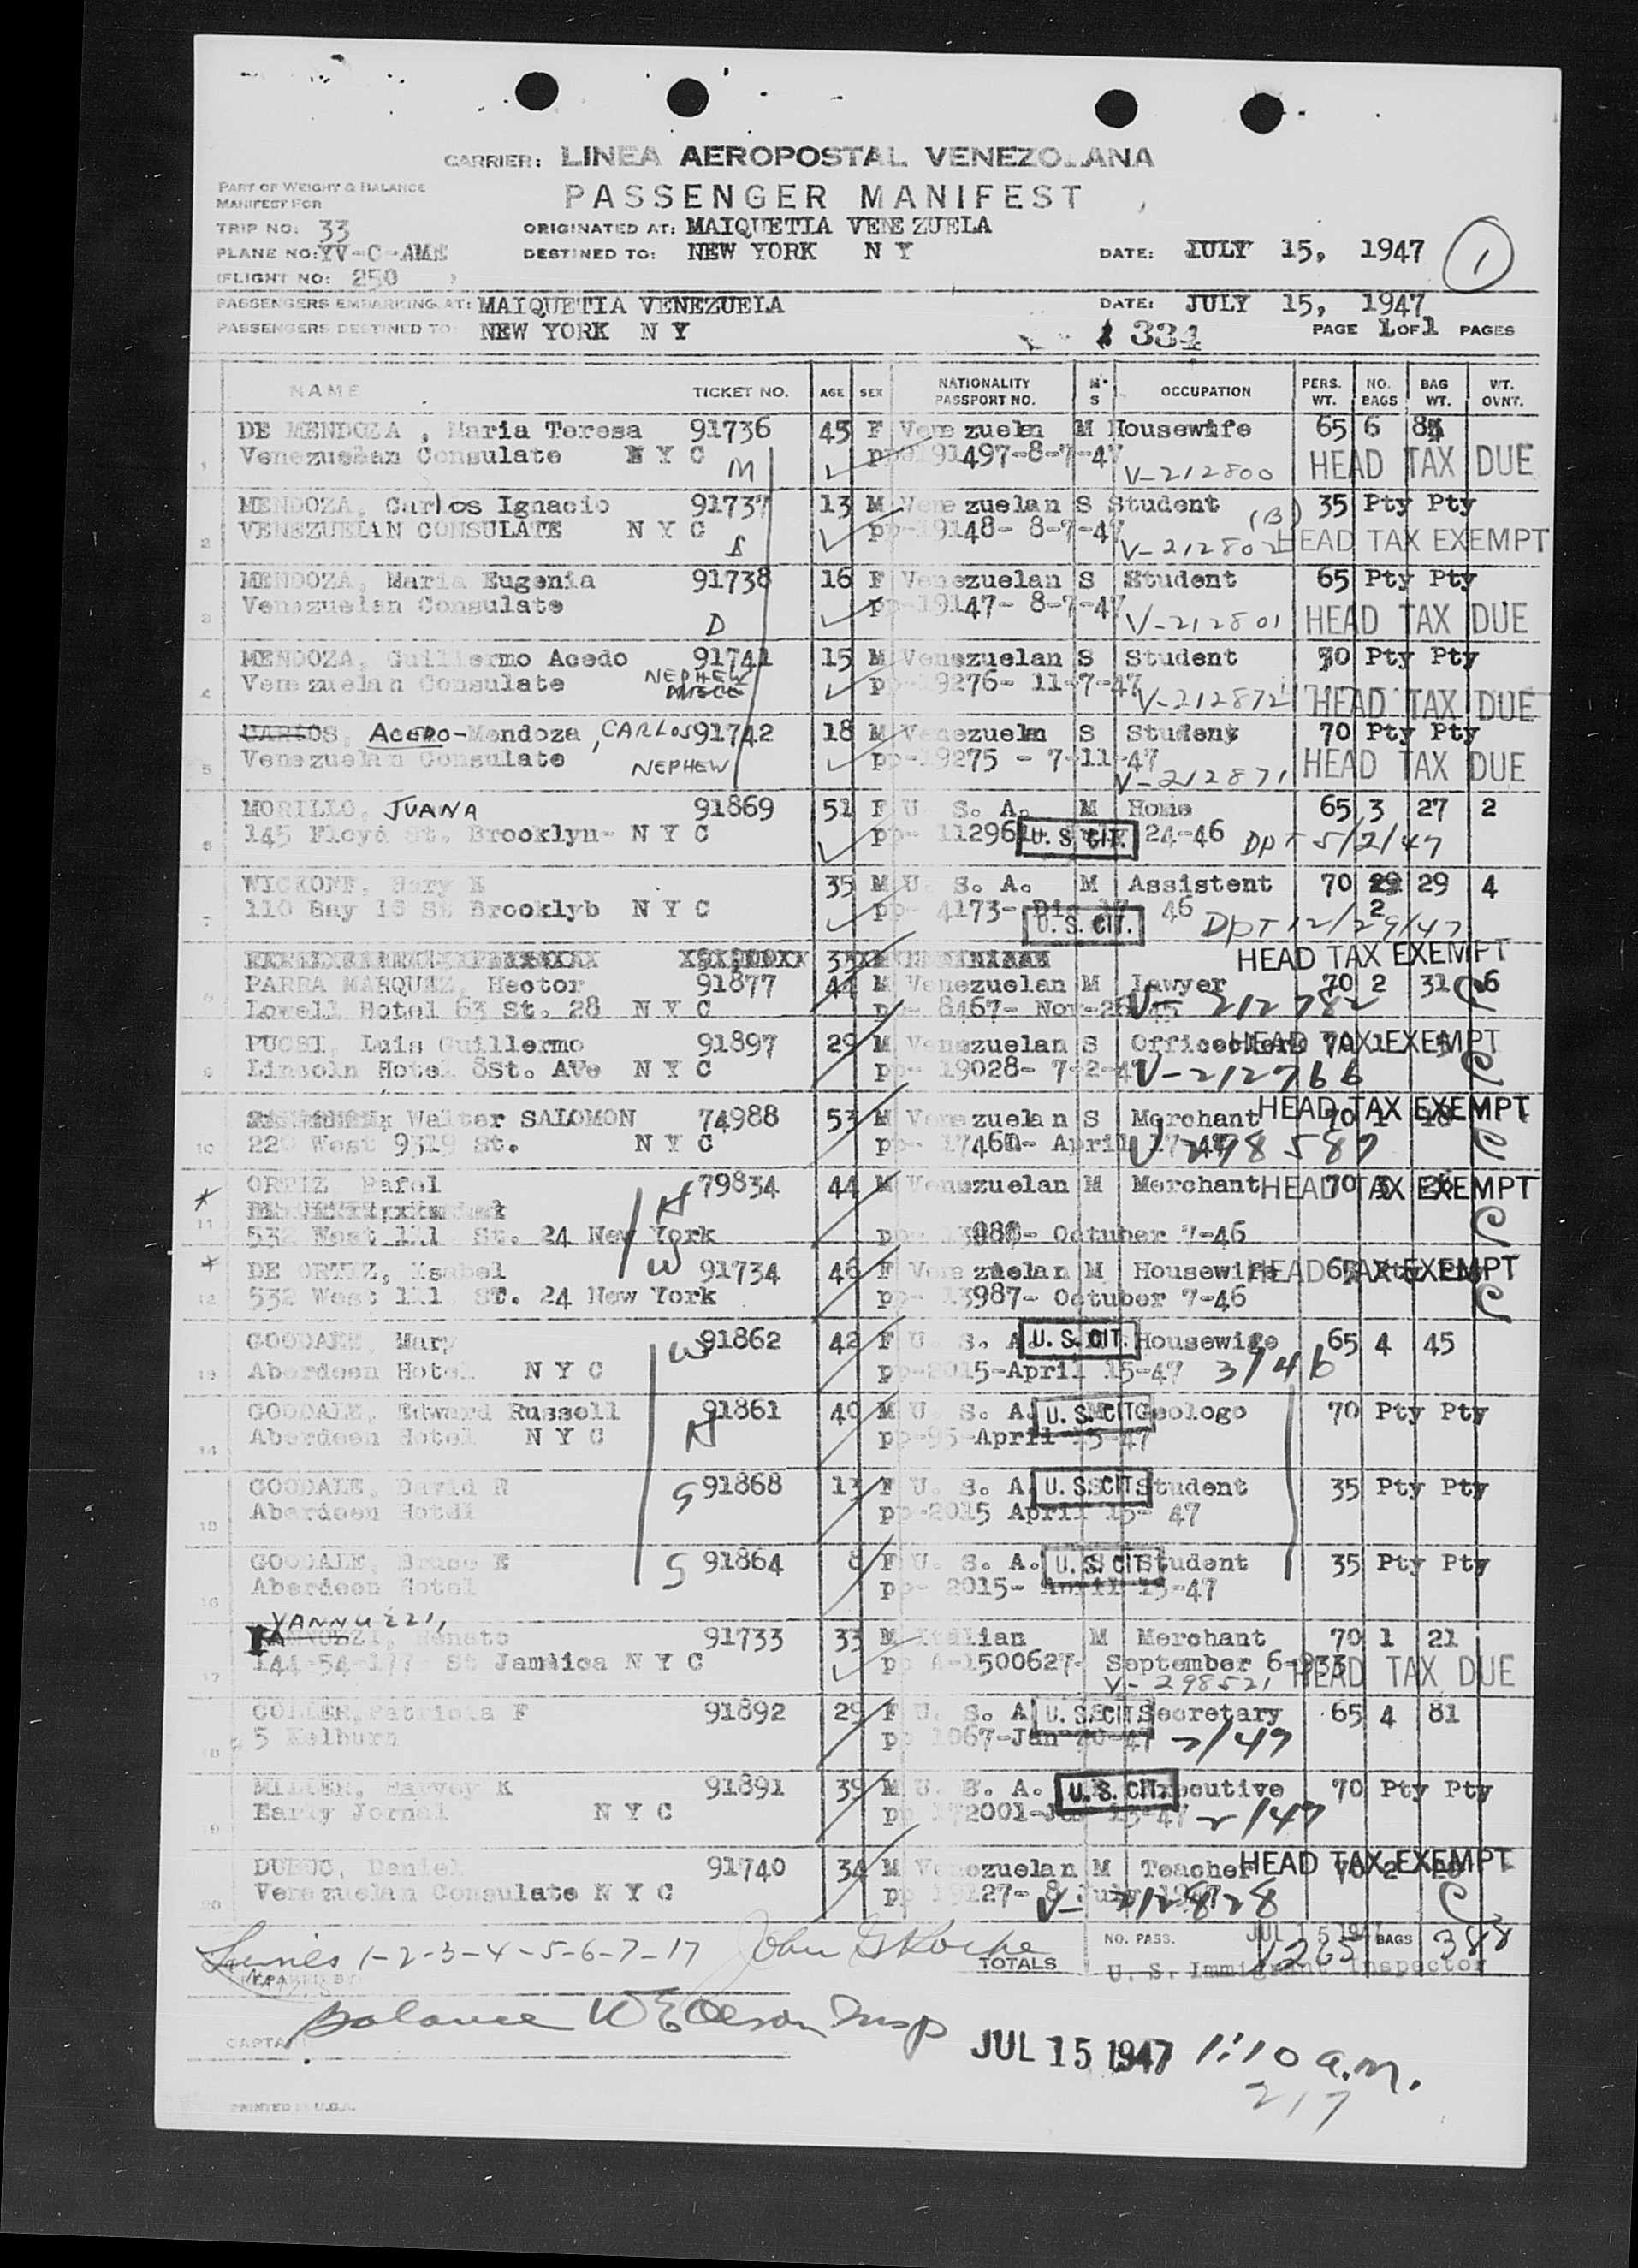 CARRIER: LINEA AEROPOSTAL VENEZOLANA
PART OF WEIGHT & BALANCE
MANIFEST FOR
PASSENGER MANIFEST
TRIP NO: 33
ORIGINATED AT: MAIQUETIA VENEZUELA
PLANE NO: YV-C-AME
DESTINED TO: NEW YORK N Y
DATE: JULY 15, 1947
1
FLIGHT NO: 250
PASSENGERS EMBARKING AT: MAIQUETIA VENEZUELA
DATE: JULY 15, 1947
PASSENGERS DESTINED TO: NEW YORK N Y
334
PAGE 1 OF 1 PAGES
NAME TICKET NO. AGE SEX NATIONALITY PASSPORT NO. M S OCCUPATION PERS. WT. NO. BAGS BAG WT. WT. OVNT.
DE MENDOZA, Maria Teresa 91736 45 F Venezuelan M Housewife 65 6
1 Venezuelan Consulate N Y C M 8-7-47 V-212800 HEAD TAX DUE
MENDOZA, Carlos Ignacio 91737 13 M Venezuelan S Student (B) 35 Pty Pty
2 VENEZUELAN CONSULATE N Y C S pp-19148- 8-7-47 V-212802 HEAD TAX EXEMPT
MENDOZA, Maria Eugenia 91738 16 F Venezuelan S Student 65 Pty Pty
3 Venezuelan Consulate D pp-19147- 8-7-47 V-212801 HEAD TAX DUE
MENDOZA, Guillermo Acedo 91741 15 M Venezuelan S Student 70 Pty Pty
4 Venezuelan Consulate NEPHEW pp-19276- 11-7-47 V-212872 HEAD TAX DUE
CARLOS, ACEDO-Mendoza, CARLOS 91742 18 M Venezuelan S Student 70 Pty Pty
5 Venezuelan Consulate NEPHEW pp-19275 - 7-11-47 V-212871 HEAD TAX DUE
MORILLO, JUANA 91869 51 F U. S. A. M Home 65 3 27 2
6 145 Floyd St. Brooklyn- N Y C pp- U. S. CIT. 24-46 DPT 5/2/47
35 M U. S. A. M Assistent 70 2 29 4
7 110 Bay 16 St Brooklyb N Y C pp- 4173- 46 U. S. CIT. DPT 12/29/47
HEAD TAX EXEMPT
PARRA MARQUEZ, Hector 91877 44 M Venezuelan M Lawyer 70 2 31 6
8 Lowell Hotel 63 St. 28 N Y C pp- 8467- V-212782
PUCSI, Luis Guillermo 91897 29 M Venezuelan S HEAD TAX EXEMPT
9 Lincoln Hotel 8St. AVe N Y C pp- 19028- 7-2-47 V-212766
Walter SALOMON 74988 53 M Venezuelan S Merchant 70 1 HEAD TAX EXEMPT
10 West St. N Y C April V 298587
* ORTIZ Rafel H 79834 44 M Venezuelan M Merchant 70 HEAD TAX EXEMPT
11 532 West 111 St. 24 New York Octuber 7-46
* DE ORTIZ, Isabel W 91734 46 F Venezuelan M Housewife 65 HEAD TAX EXEMPT
12 532 West 111 ST. 24 New York pp- 13987- Octuber 7-46
GOODALE, Mary W 91862 42 F U. S. A. U. S. CIT. Housewife 65 4 45
13 Aberdeen Hotel N Y C pp-2015-April 15-47 3/46
GOODALE, Edward Russell H 91861 40 M U. S. A. U. S. CIT. Geologo 70 Pty Pty
14 Aberdeen Hotel N Y C pp-95-April 15-47
GOODALE, David R S 91868 13 F U. S. A. U. S. CIT. Student 35 Pty Pty
15 Aberdeen Hotdl pp-2015 April 15- 47
GOODALE, Bruce E S 91864 8 F U. S. A. U. S. CIT. Student 35 Pty Pty
16 Aberdeen Hotel pp- 2015- April 15-47
YANNUZZI,
Renato 91733 33 M Italian M Merchant 70 1 21
17 144-54-177 St Jamaica N Y C pp A-1500627- September V-298521 HEAD TAX DUE
Patricia F 91892 29 F U. S. A. U. S. CIT. Secretary 65 4 81
18 5 Kelburn pp 1067-Jan 7/47
MILLER, Harvey K 91891 39 M U. S. A. U. S. CIT. Executive 70 Pty Pty
19 Early Jornal N Y C 2/47
DUBUC, Daniel 91740 34 M Venezuelan M Teacher 70 2 HEAD TAX EXEMPT
20 Venezuelan Consulate N Y C pp 19127- 8 July V-212828
1-2-3-4-5-6-7-17 John G Roche
TOTALS NO. PASS. JUL 15 1947 BAGS
PREPARED BY
U. S. Immigrant Inspector
Balance W E Olson Insp
CAPTAIN
JUL 15 1947 1:10 a.m.
217
PRINTED IN U.S.A.